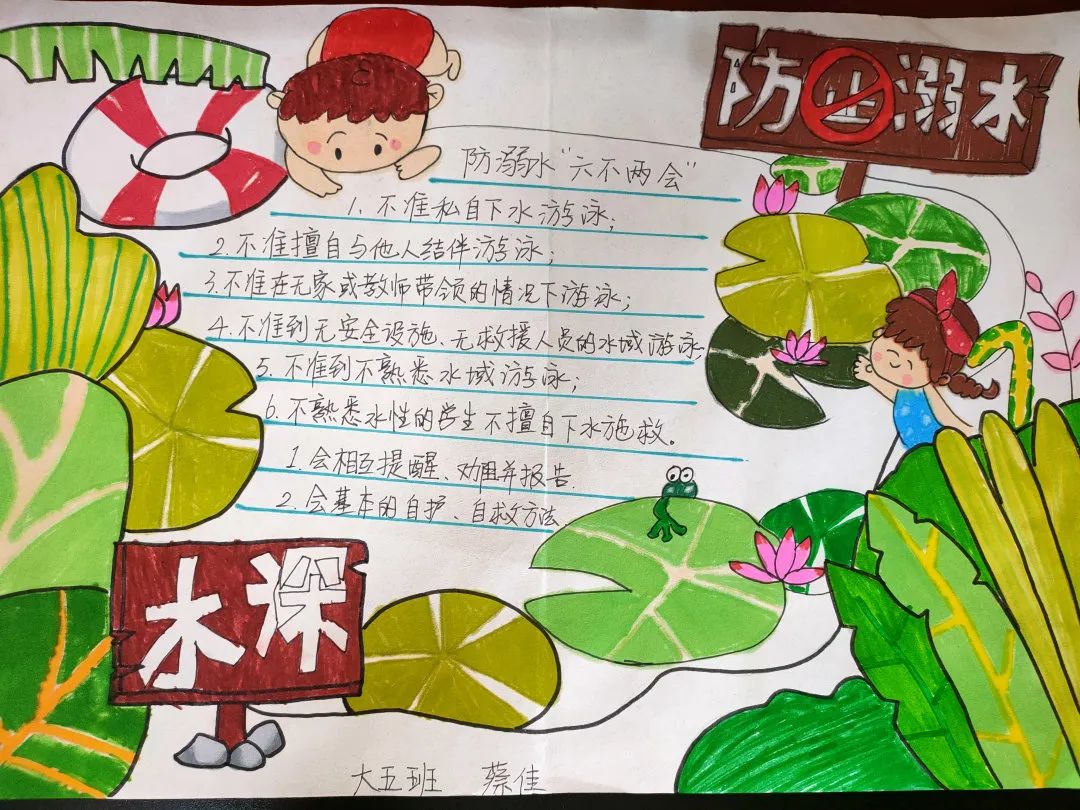 防止溺水
防溺水“六不两会”
1. 不准私自下水游泳；
2. 不准擅自与他人结伴游泳；
3. 不准在无家或教师带领的情况下游泳；
4. 不准到无安全设施、无救援人员的水域游泳
5. 不准到不熟悉水域游泳；
6. 不熟悉水性的学生不擅自下水施救。
1. 会相互提醒、劝阻并报告.
2. 会基本的自护、自救方法
水深
大五班 蔡佳